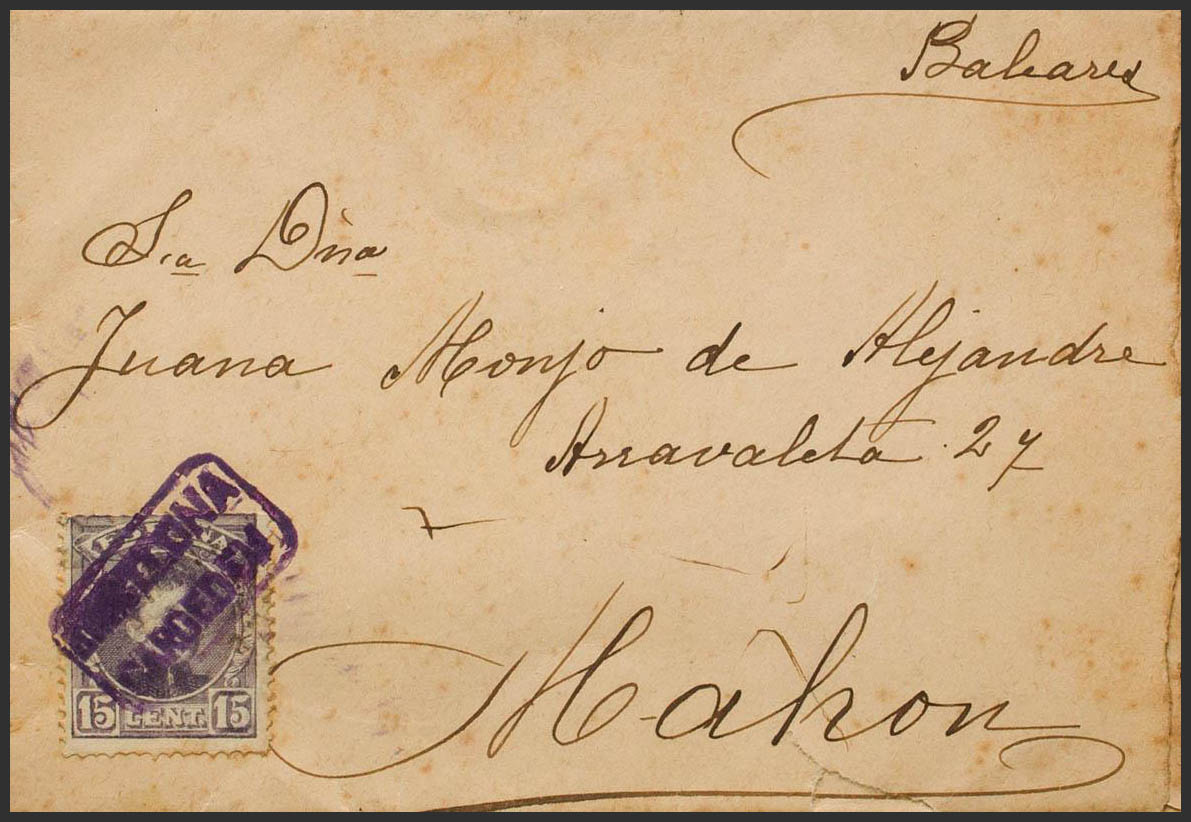 Baleares
S.ra Dña
Juana Monjo de Alejandre
Arravaleta 27
Mahon
BARCELONA
CARDEDEU
15 CENT. 15